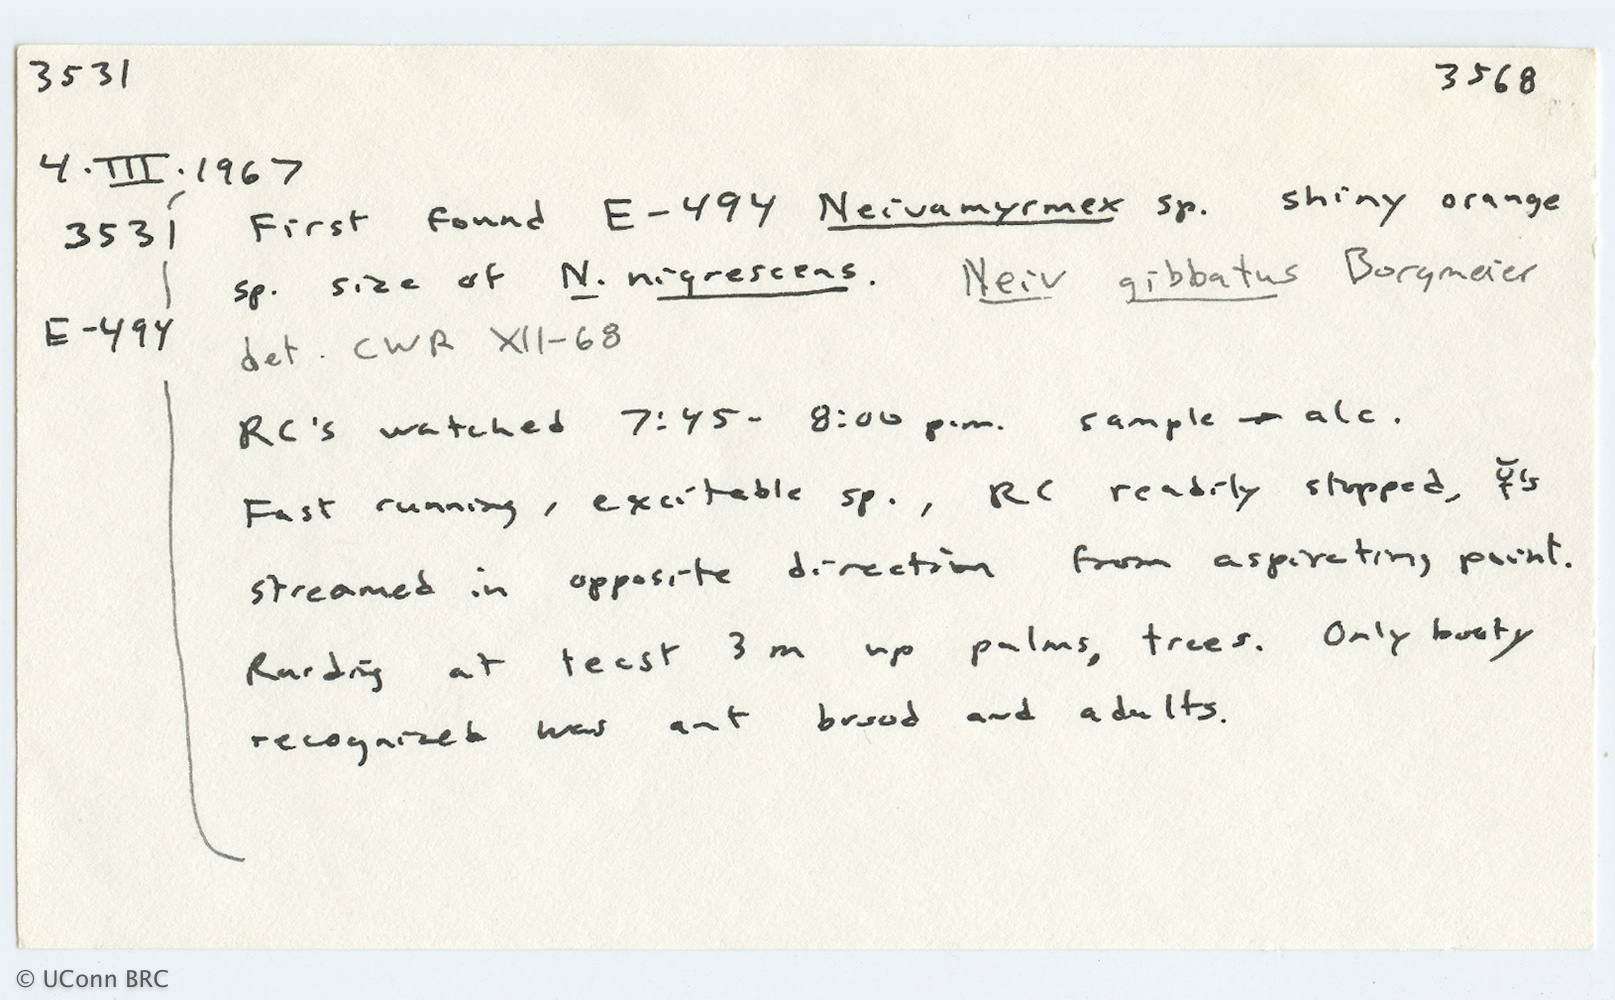 3531 3568
4.III.1967
3531 First found E-494 Neivamyrmex sp. shiny orange
sp. size of N. nigrescens. Neiv gibbatus Borgmeier
E-494
det. CWR XII-68
RC's watched 7:45- 8:00 p.m. sample → alc.
Fast running, excitable sp., RC readily stopped, ☿'s
streamed in opposite direction from aspirating point.
Raiding at least 3 m up palms, trees. Only booty
recognized was ant brood and adults.
© UConn BRC